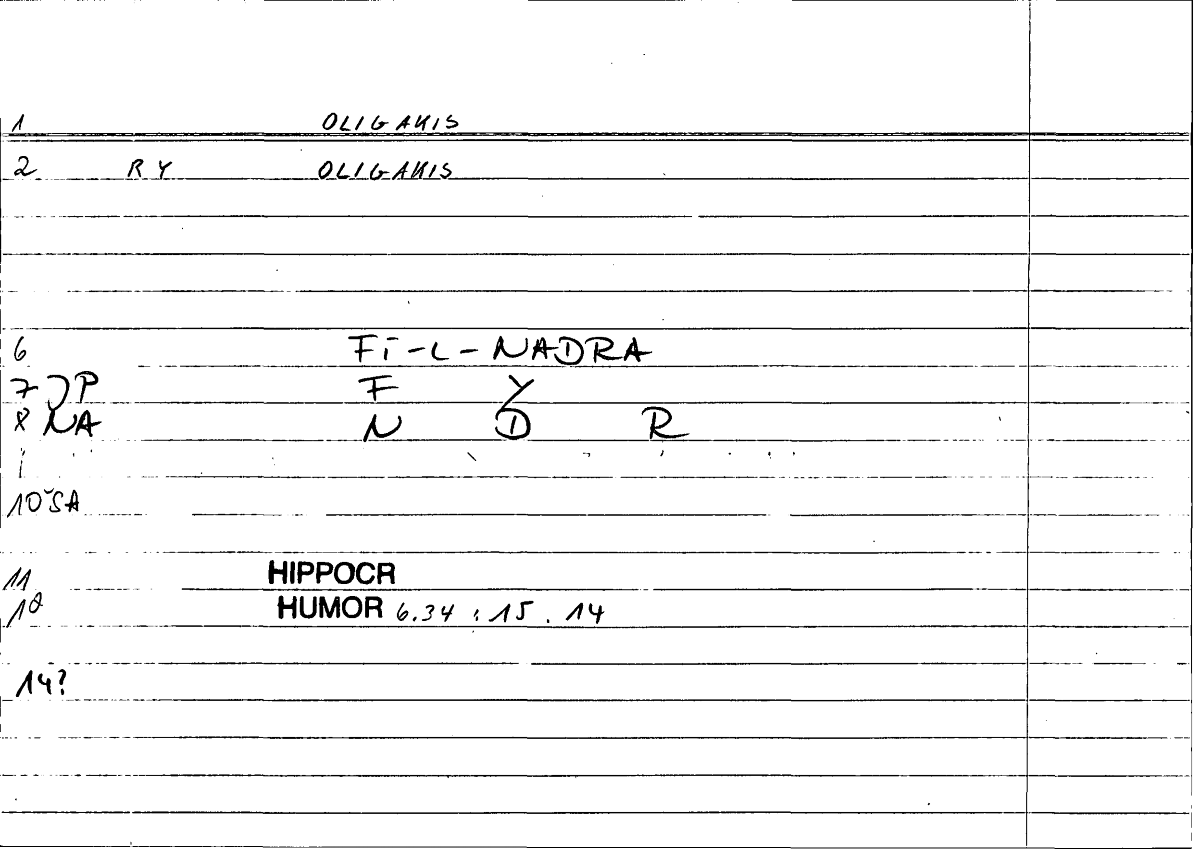 1 OLIGAKIS
2 RY OLIGAKIS
6 Fi-L-NADRA
7 JP F Y
8 NA N D R
10 ŠA
11 HIPPOCR
10 HUMOR 6.34 : 15 . 14
14?